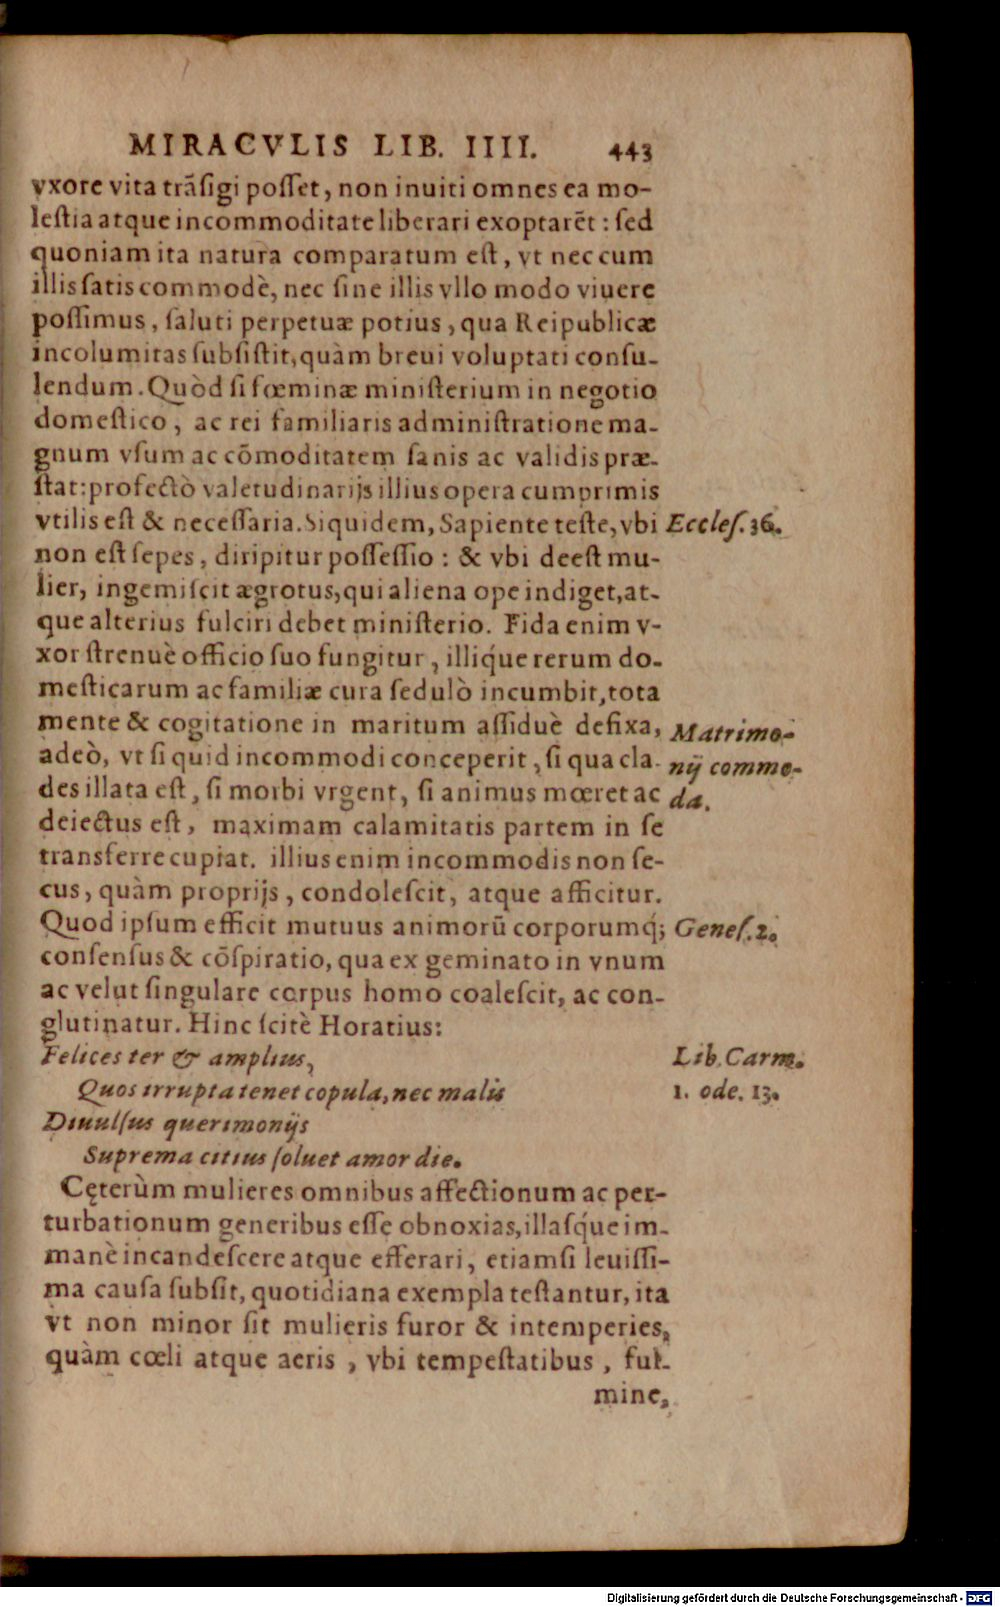 MIRACVLIS LIB. IIII. 443
vxore vita trãſigi poſſet, non inuiti omnes ea mo-
leſtia atque incommoditate liberari exoptarẽt : ſed
quoniam ita natura comparatum eſt, vt nec cum
illis ſatis commodè, nec ſine illis vllo modo viuere
poſſimus, ſaluti perpetuæ potius, qua Reipublicæ
incolumitas ſubſiſtit, quàm breui voluptati conſu-
lendum. Quòd ſi fœminæ miniſterium in negotio
domeſtico, ac rei familiaris adminiſtratione ma-
gnum vſum ac cõmoditatem ſanis ac validis præ-
ſtat: profectò valetudinarijs illius opera cumprimis
vtilis eſt & neceſſaria. Siquidem, Sapiente teſte, vbi
Eccleſ. 36.
non eſt ſepes, diripitur poſſeſſio : & vbi deeſt mu-
lier, ingemiſcit ægrotus, qui aliena ope indiget, at-
que alterius fulciri debet miniſterio. Fida enim v-
xor ſtrenuè officio ſuo fungitur, illiq́ue rerum do-
meſticarum ac familiæ cura ſedulò incumbit, tota
mente & cogitatione in maritum aſſiduè defixa,
Matrimo-
adeò, vt ſi quid incommodi conceperit, ſi qua cla-
nij commo-
des illata eſt, ſi morbi vrgent, ſi animus mœret ac
da.
deiectus eſt, maximam calamitatis partem in ſe
transferre cupiat. illius enim incommodis non ſe-
cus, quàm proprijs, condoleſcit, atque afficitur.
Quod ipſum efficit mutuus animorũ corporumq́;
Geneſ. 2.
conſenſus & cõſpiratio, qua ex geminato in vnum
ac velut ſingulare corpus homo coaleſcit, ac con-
glutinatur. Hinc ſcitè Horatius:
Felices ter & amplius,
Lib. Carm.
Quos irrupta tenet copula, nec malis
1. ode. 13.
Diuulſus querimonijs
Suprema citius ſoluet amor die.
Cęterùm mulieres omnibus affectionum ac per-
turbationum generibus eſſe obnoxias, illaſq́ue im-
manè incandeſcere atque efferari, etiamſi leuiſſi-
ma cauſa ſubſit, quotidiana exempla teſtantur, ita
vt non minor ſit mulieris furor & intemperies,
quàm cœli atque aeris, vbi tempeſtatibus, ful-
mine,
Digitalisierung gefördert durch die Deutsche Forschungsgemeinschaft - DFG